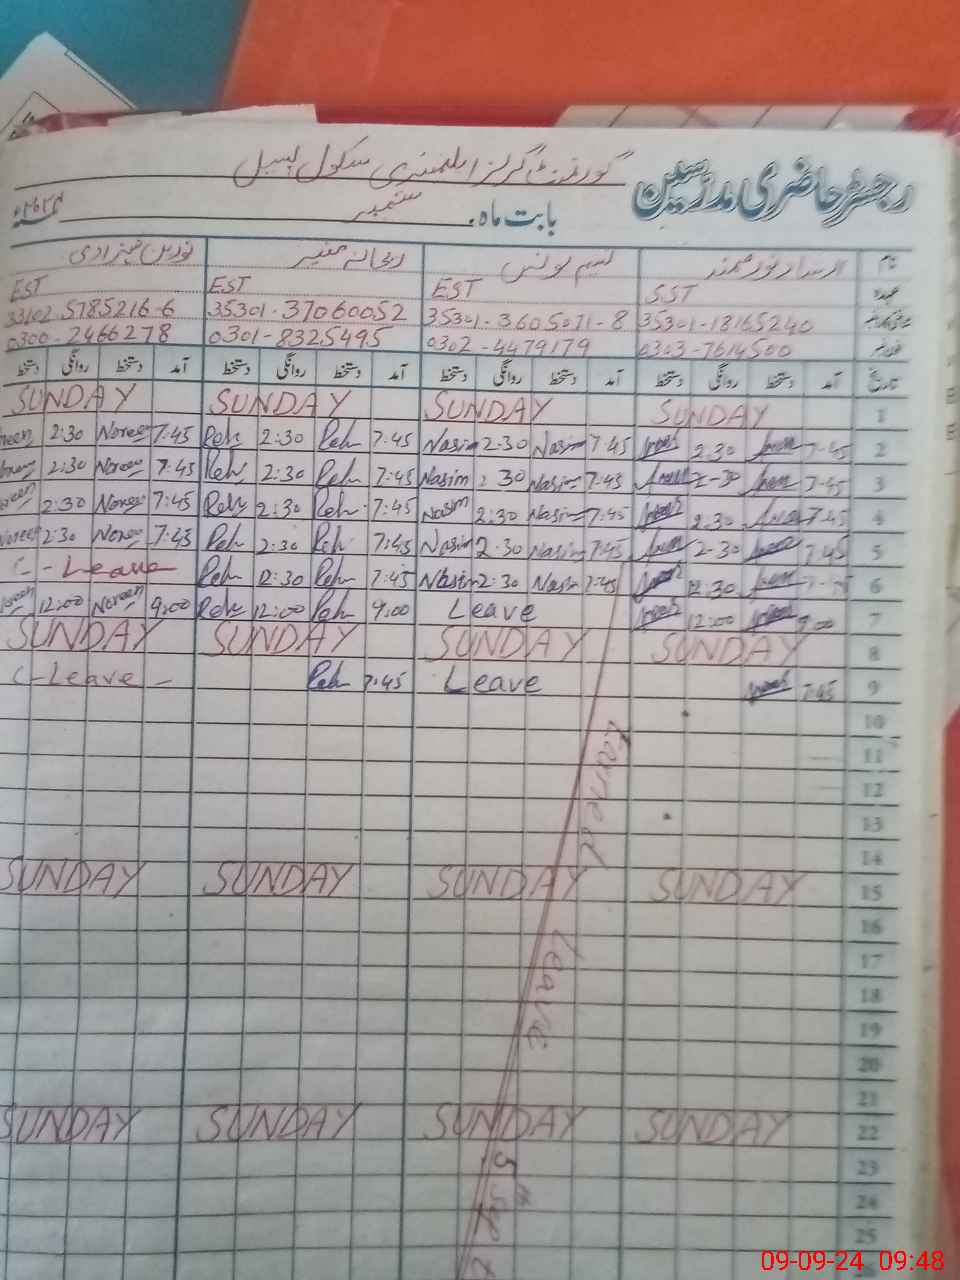 رجسٹر حاضری مدرسین گورنمنٹ گرلز ایلیمنٹری سکول
بابت ماہ ستمبر ۲۰۲۴ء
نام نسیم یونس ریحانہ منیر نورین شہزادی
عہدہ SST EST EST EST
35301-18165240 35301-3605071-8 35301-37060052 33102-5785216-6
0303-7614500 0302-4479179 0301-8325495 0300-2466278
تاریخ آمد دستخط روانگی دستخط آمد دستخط روانگی دستخط آمد دستخط روانگی دستخط آمد دستخط روانگی دستخط
1 SUNDAY SUNDAY SUNDAY SUNDAY
2 7-45 2:30 7:45 Nasim 2:30 Nasim 7:45 Reh 2:30 Reh 7:45 Noreen 2:30
3 7-45 2-30 7:45 Nasim 30 Nasim 7:45 Reh 2:30 Reh 7:45 Noreen 2:30
4 7-45 2:30 7:45 Nasim 2:30 Nasim 7:45 Reh 2:30 Reh 7:45 Noreen 2:30
5 7:45 2-30 7:45 Nasim 2:30 Nasim 7:45 Reh 2:30 Reh 7:45 Noreen 2:30 Noreen
6 12:30 7:45 Nasim 2:30 Nasim 7:45 Reh 12:30 Reh C-Leave
7 9:00 12:00 Leave 9:00 Reh 12:00 Reh 9:00 Noreen 12:00 Noreen
8 SUNDAY SUNDAY SUNDAY SUNDAY
9 7:45 Leave 7:45 Reh C-Leave -
10
11
12
13
14
15 SUNDAY SUNDAY SUNDAY SUNDAY
16
17
18
19
20
21
22 SUNDAY SUNDAY SUNDAY SUNDAY
23
24
25
Earned Leave 5th Sep
09-09-24 09:48